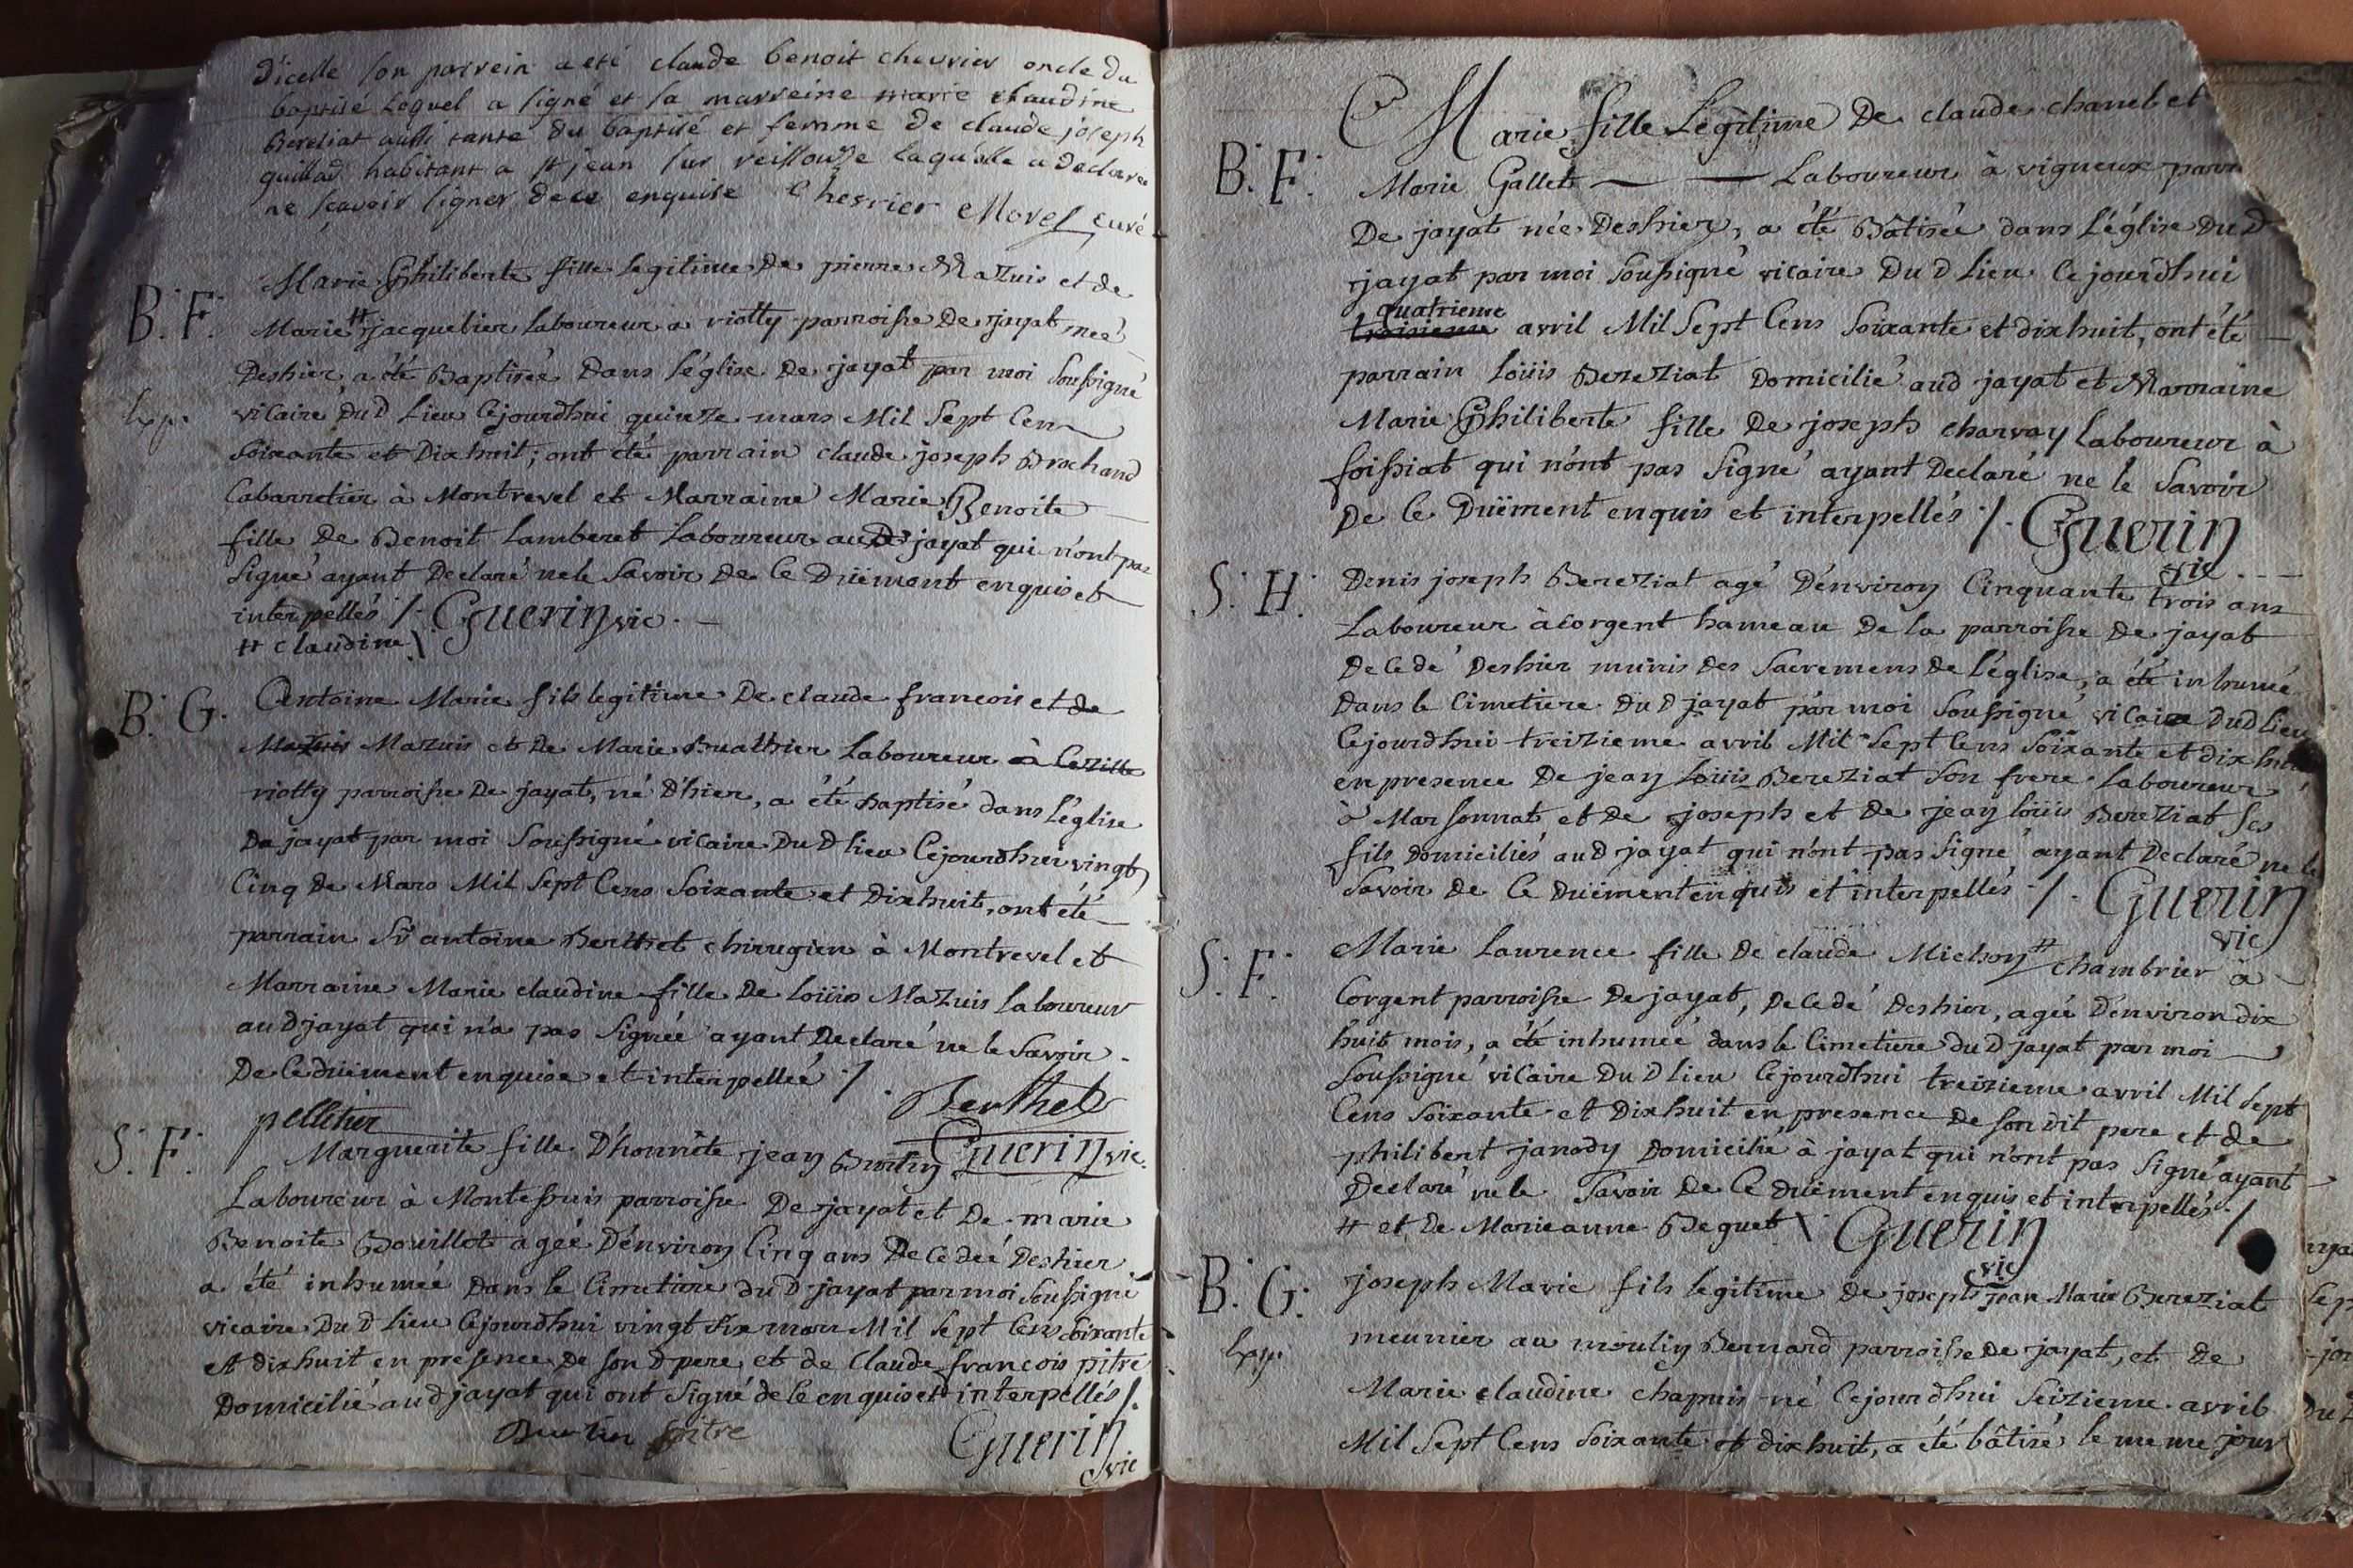 d'icelle son parrein a eté claude benoit chevrier oncle du
baptisé lequel a signé et sa marreine marie claudine
Bereziat aussi tante du baptisé et femme de claude joseph
quillad habitant a st jean sur reissouse laquelle a declaré
ne sçavoir signer de ce enquise Chevrier Morel curé
B. F.
Marie Philiberte fille legitime De pierre Mazuis et de
Marie # jacquelier laboureur a viotty parroisse De jayat, née
Deshier, a été Baptisée Dans l'église De jayat par moi soussigné
Exp.
vicaire Du D lieu Cejourdhui quinze mars Mil Sept Cens
soixante et Dixhuit; ont été parrain claude joseph Brochand
Cabarretier à Montrevel et Marraine Marie Benoite
fille De Benoit Lamberet Laboureur au D jayat qui n'ont pas
Signé ayant Declaré ne le Savoir De Ce Düement enquis et
interpellés /. Guerin vic.
# claudine \
B. G.
Antoine Marie fils legitime De claude francois et de
Mazuis Mazuis et De Marie Buathier Laboureur à Cezille
viotty parroisse De jayat, né D'hier, a été baptisé dans l'église
De jayat par moi Soussigné vicaire Du D lieu Cejourdhui vingt
Cinq De Mars Mil Sept Cens Soixante et Dixhuit, ont été
parrain Sr antoine Berthet chirurgien à Montrevel et
Marraine Marie claudine fille De Loüis Mazuis laboureur
au D jayat qui n'a pas Signée ayant Declaré ne le Savoir
De Ce düement enquise et interpellée /.
Berthet
pelletier
Guerin vic.
S. F.
Marguerite fille D'honnête jean Burtin
Laboureur à Montessuis parroisse De jayat et De marie
Benoite Bouillet agée D'environ Cinq ans Decedée Deshier
a été inhumée Dans le Cimetiere du D jayat par moi soussigné
vicaire Du D lieu Cejourdhui vingt six mars Mil Sept Cens soixante
et dixhuit en presence De son D pere et de Claude francois pitre
Domicilié au D jayat qui ont Signé de Ce enquis et interpellés /.
Burtin pitre
Guerin
vic
B. F.
Marie fille Légitime De claude chanel et
Marie Gallet — — Laboureur à vigneux parr
De jayat née Deshier, a été Bâtisée dans l'église Du D
jayat par moi Soussigné vicaire Du D lieu Cejourdhui
quatrieme
troisieme avril Mil Sept Cens Soixante et dixhuit, ont été
parrain Loüis Bereziat Domicilié au D jayat et Marraine
Marie Philiberte fille De joseph charvay Laboureur à
foissiat qui n'ont pas Signé ayant Declaré ne le Savoir
De Ce Düement enquis et interpellés /. Guerin
vic
S. H.
Denis joseph Bereziat agé D'environ Cinquante trois ans
Laboureur à Corgent hameau De la parroisse De jayat
Decedé Deshier munis des Sacremens de l'église, a été inhumé
Dans le Cimetiere Du D jayat par moi Soussigné vicaire Du D lieu
Cejourdhui treizieme avril Mil Sept Cens Soixante et dix huit
en presence De jean Loüis Bereziat Son frere Laboureur
à Marsonnat et de joseph et De jean loüis Bereziat Ses
fils Domiciliés au D jayat qui n'ont pas Signé ayant Declaré ne le
Savoir De Ce Düement enquis et interpellés /. Guerin
vic
S. F.
Marie Laurence fille De claude Michon # chambrier à
Corgent parroisse De jayat, Decedé Deshier, agée D'environ dix
huit mois, a été inhumée dans le Cimetiere du D jayat par moi
Soussigné vicaire Du D lieu Cejourdhui treizieme avril Mil Sept
Cens Soixante et Dixhuit en presence De son dit pere et de
philibert janody Domicilié à jayat qui n'ont pas Signé ayant
Declaré ne le Savoir De Ce düement enquis et interpellés /
# et De Marie anne Beguet \ Guerin
vic
B. G.
joseph Marie fils legitime de joseph jean Marie Bereziat
Exp.
meunier au moulin Bernard parroisse De jayat, et de
Marie claudine chapuis né Cejourdhui Seizieme avril
Mil Sept Cens Soixante et dixhuit, a été bâtisé le meme jour